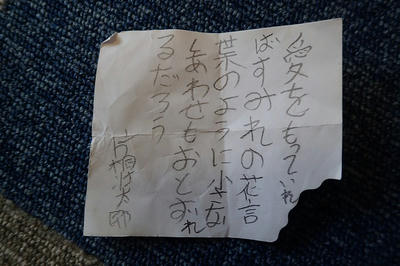 愛をもっていれ
ばすみれの花言
葉のように小さな
しあわせもおとずれ
るだろう